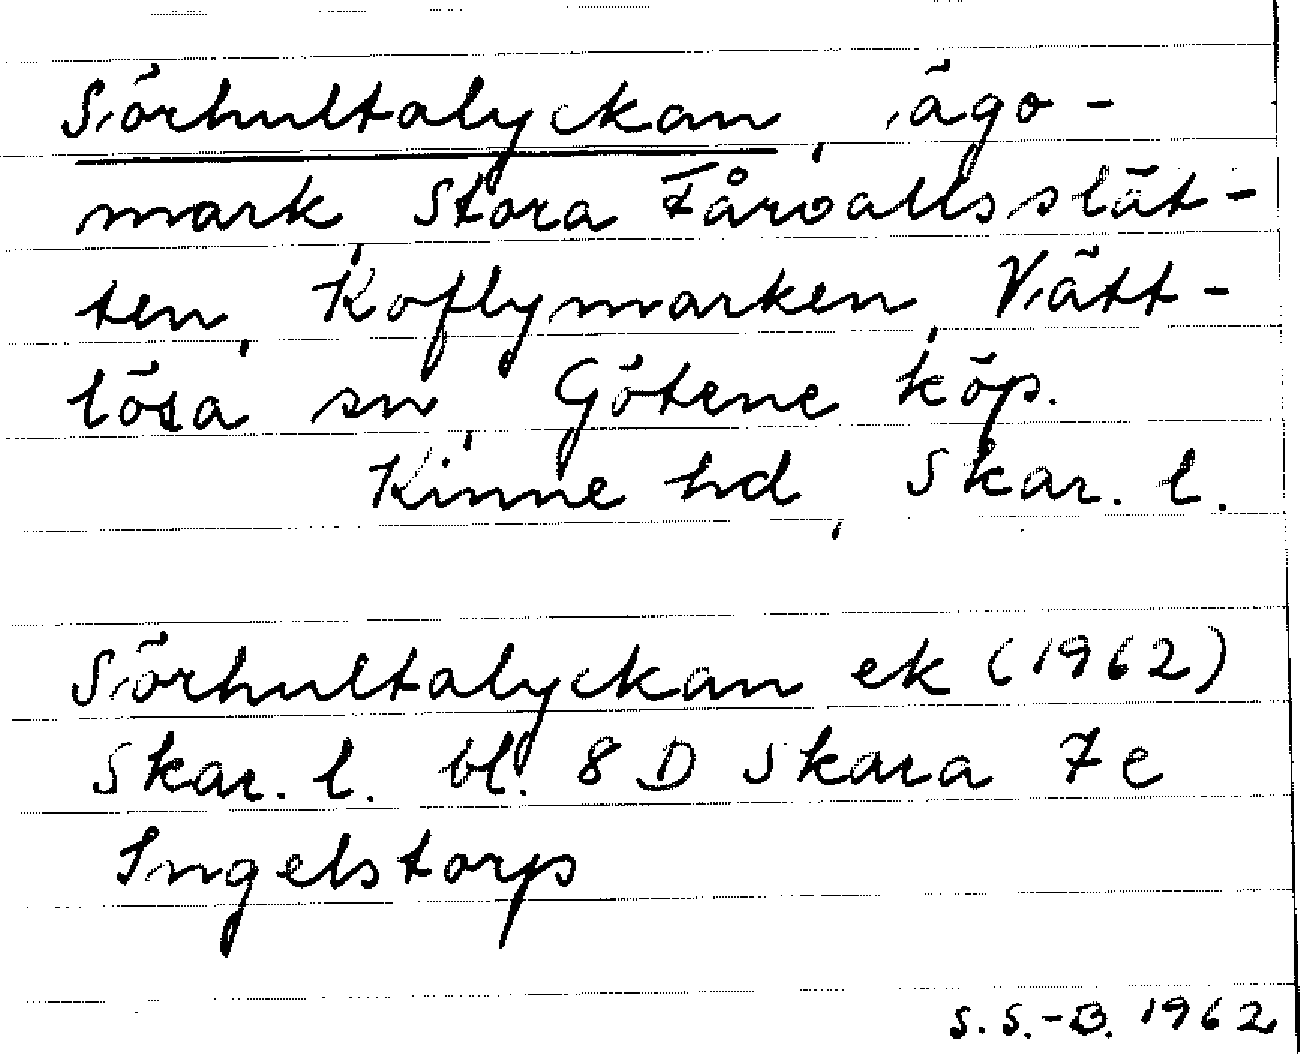 Sörhultalyckan, ägo-
mark, Stora Fåröallsslät-
ten, Koflymarken, Vätt-
lösa sn, Götene köp.
Kinne hd, Skar. l.
Sörhultalyckan ek (1962)
Skar. l. bl. 8 D Skara 7 c
Ingelstorp
S. S.-B. 1962